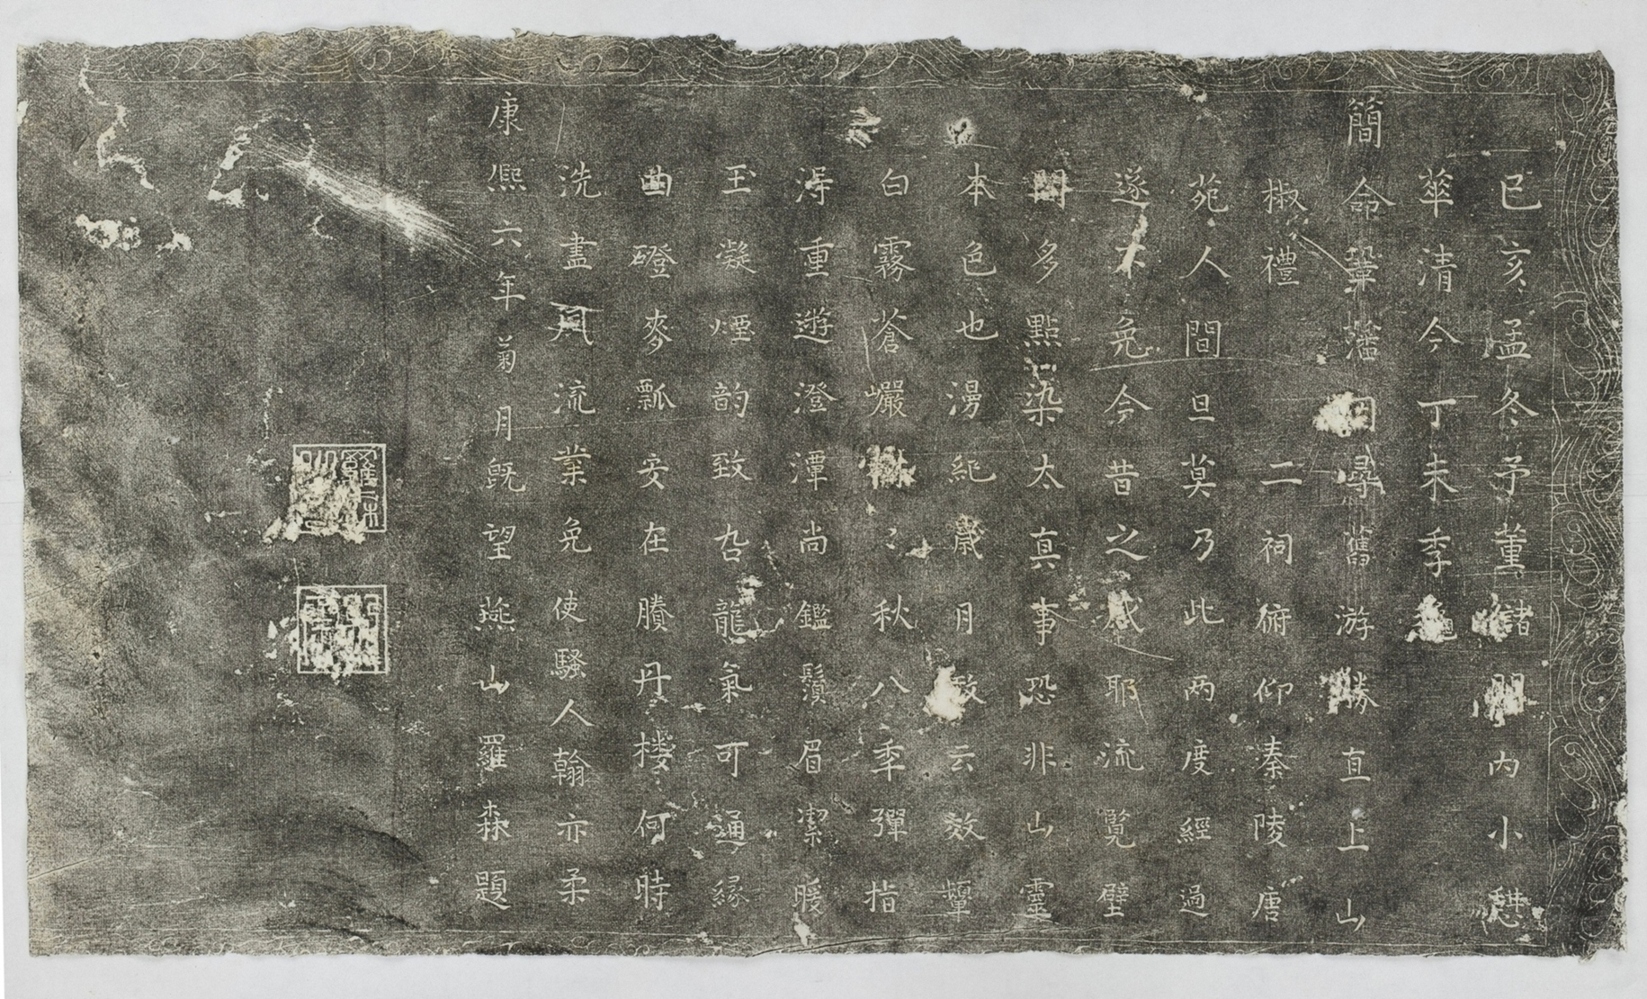 已亥孟冬予董儲關內小憇
華清今丁未季
簡命鞏藩因尋舊游勝直上山
椒禮二祠俯仰溱陵唐
苑人間旦莫乃此两度經過
遂不免今昔之感耶流覧壁
間多點染太真事恐非山靈
本色也漫紀歲月敢云效顰
白霧蒼巗秋八季彈指
淂重遊澄潭尚鑑鬚眉潔暖
玉凝煙韵致龍氣可通縁
曲磴麥瓢安在賸丹樓何時
洗盡風流業免使騷人翰亦柔
康熙六年菊月旣望燕山羅森題